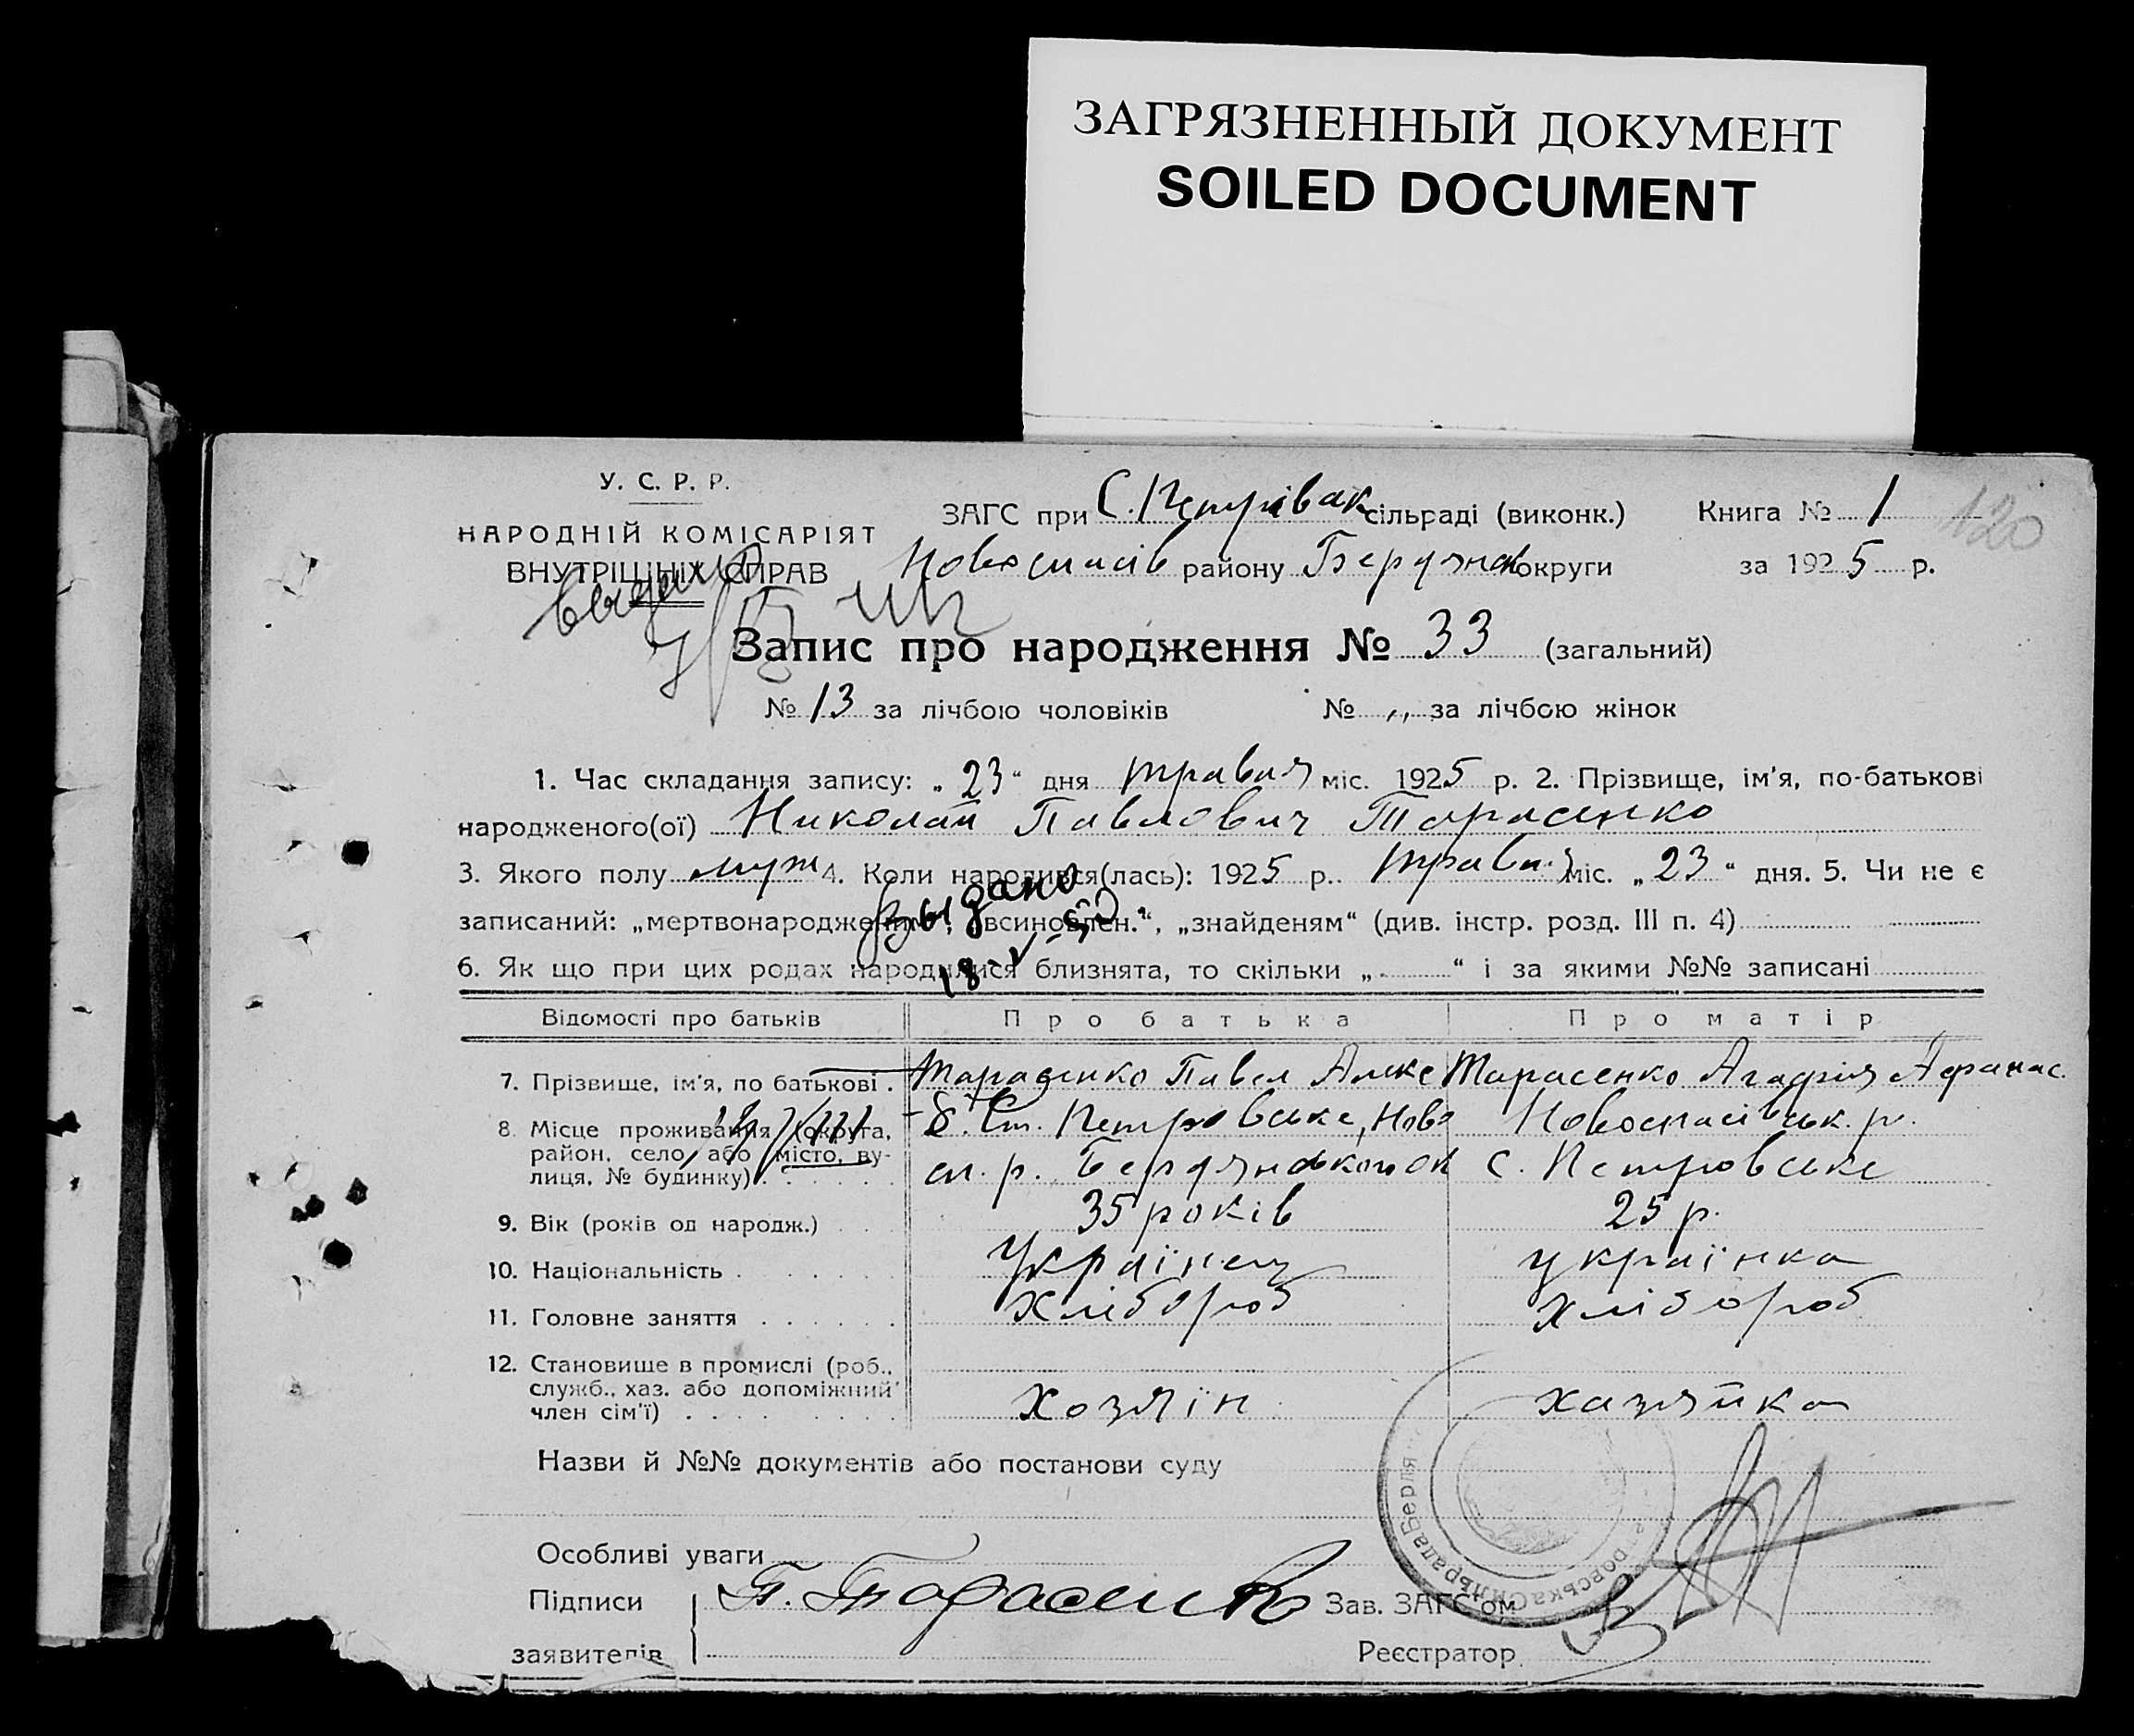 ЗАГРЯЗНЕННЫЙ ДОКУМЕНТ
SOILED DOCUMENT
У. С. Р. Р.
НАРОДНІЙ КОМІСАРІЯТ
ВНУТРІШНІХ СПРАВ
ЗАГС при С. Петрівск сільраді (виконк.) Книга № 1
120
Новоспасів району Бердянск округи за 1925 р.
Запис про народження № 33 (загальний)
№ 13 за лічбою чоловіків № „ за лічбою жінок
1. Час складання запису: „23“ дня травня міс. 1925 р. 2. Прізвище, ім'я, по-батькові
народженого(ої) Николай Павлович Тарасенко
3. Якого полу муж 4. Коли народився(лась): 1925 р. травня міс. „23“ дня. 5. Чи не є
выдано
записаний: „мертвонароджений“, „всиновлен.“, „знайденям“ (див. інстр. розд. III п. 4)
18-V-50
6. Як що при цих родах народилися близнята, то скільки „ “ і за якими №№ записані
Відомості про батьків Про батька Про матір
7. Прізвище, ім'я, по батькові . Тарасенко Павел Алексе Тарасенко Агафія Афанас.
8. Місце проживання (округа, район, село або місто, вулиця, № будинку) . . . . . .
Петровське, Ново Новоспасівськ. р.
сп. р. Бердянськой ок с. Петровське
9. Вік (років од народж.) . . 35 років 25 р.
10. Національність . . . . . Українец українка
11. Головне заняття . . . . . . хлібороб хлібороб
12. Становище в промислі (роб., служб., хаз. або допоміжний член сім'ї) . . . . . . . хозяїн хазяйка
Назви й №№ документів або постанови суду
Особливі уваги
Підписи П. Тарасенко Зав. ЗАГС'ом
заявителів Реєстратор